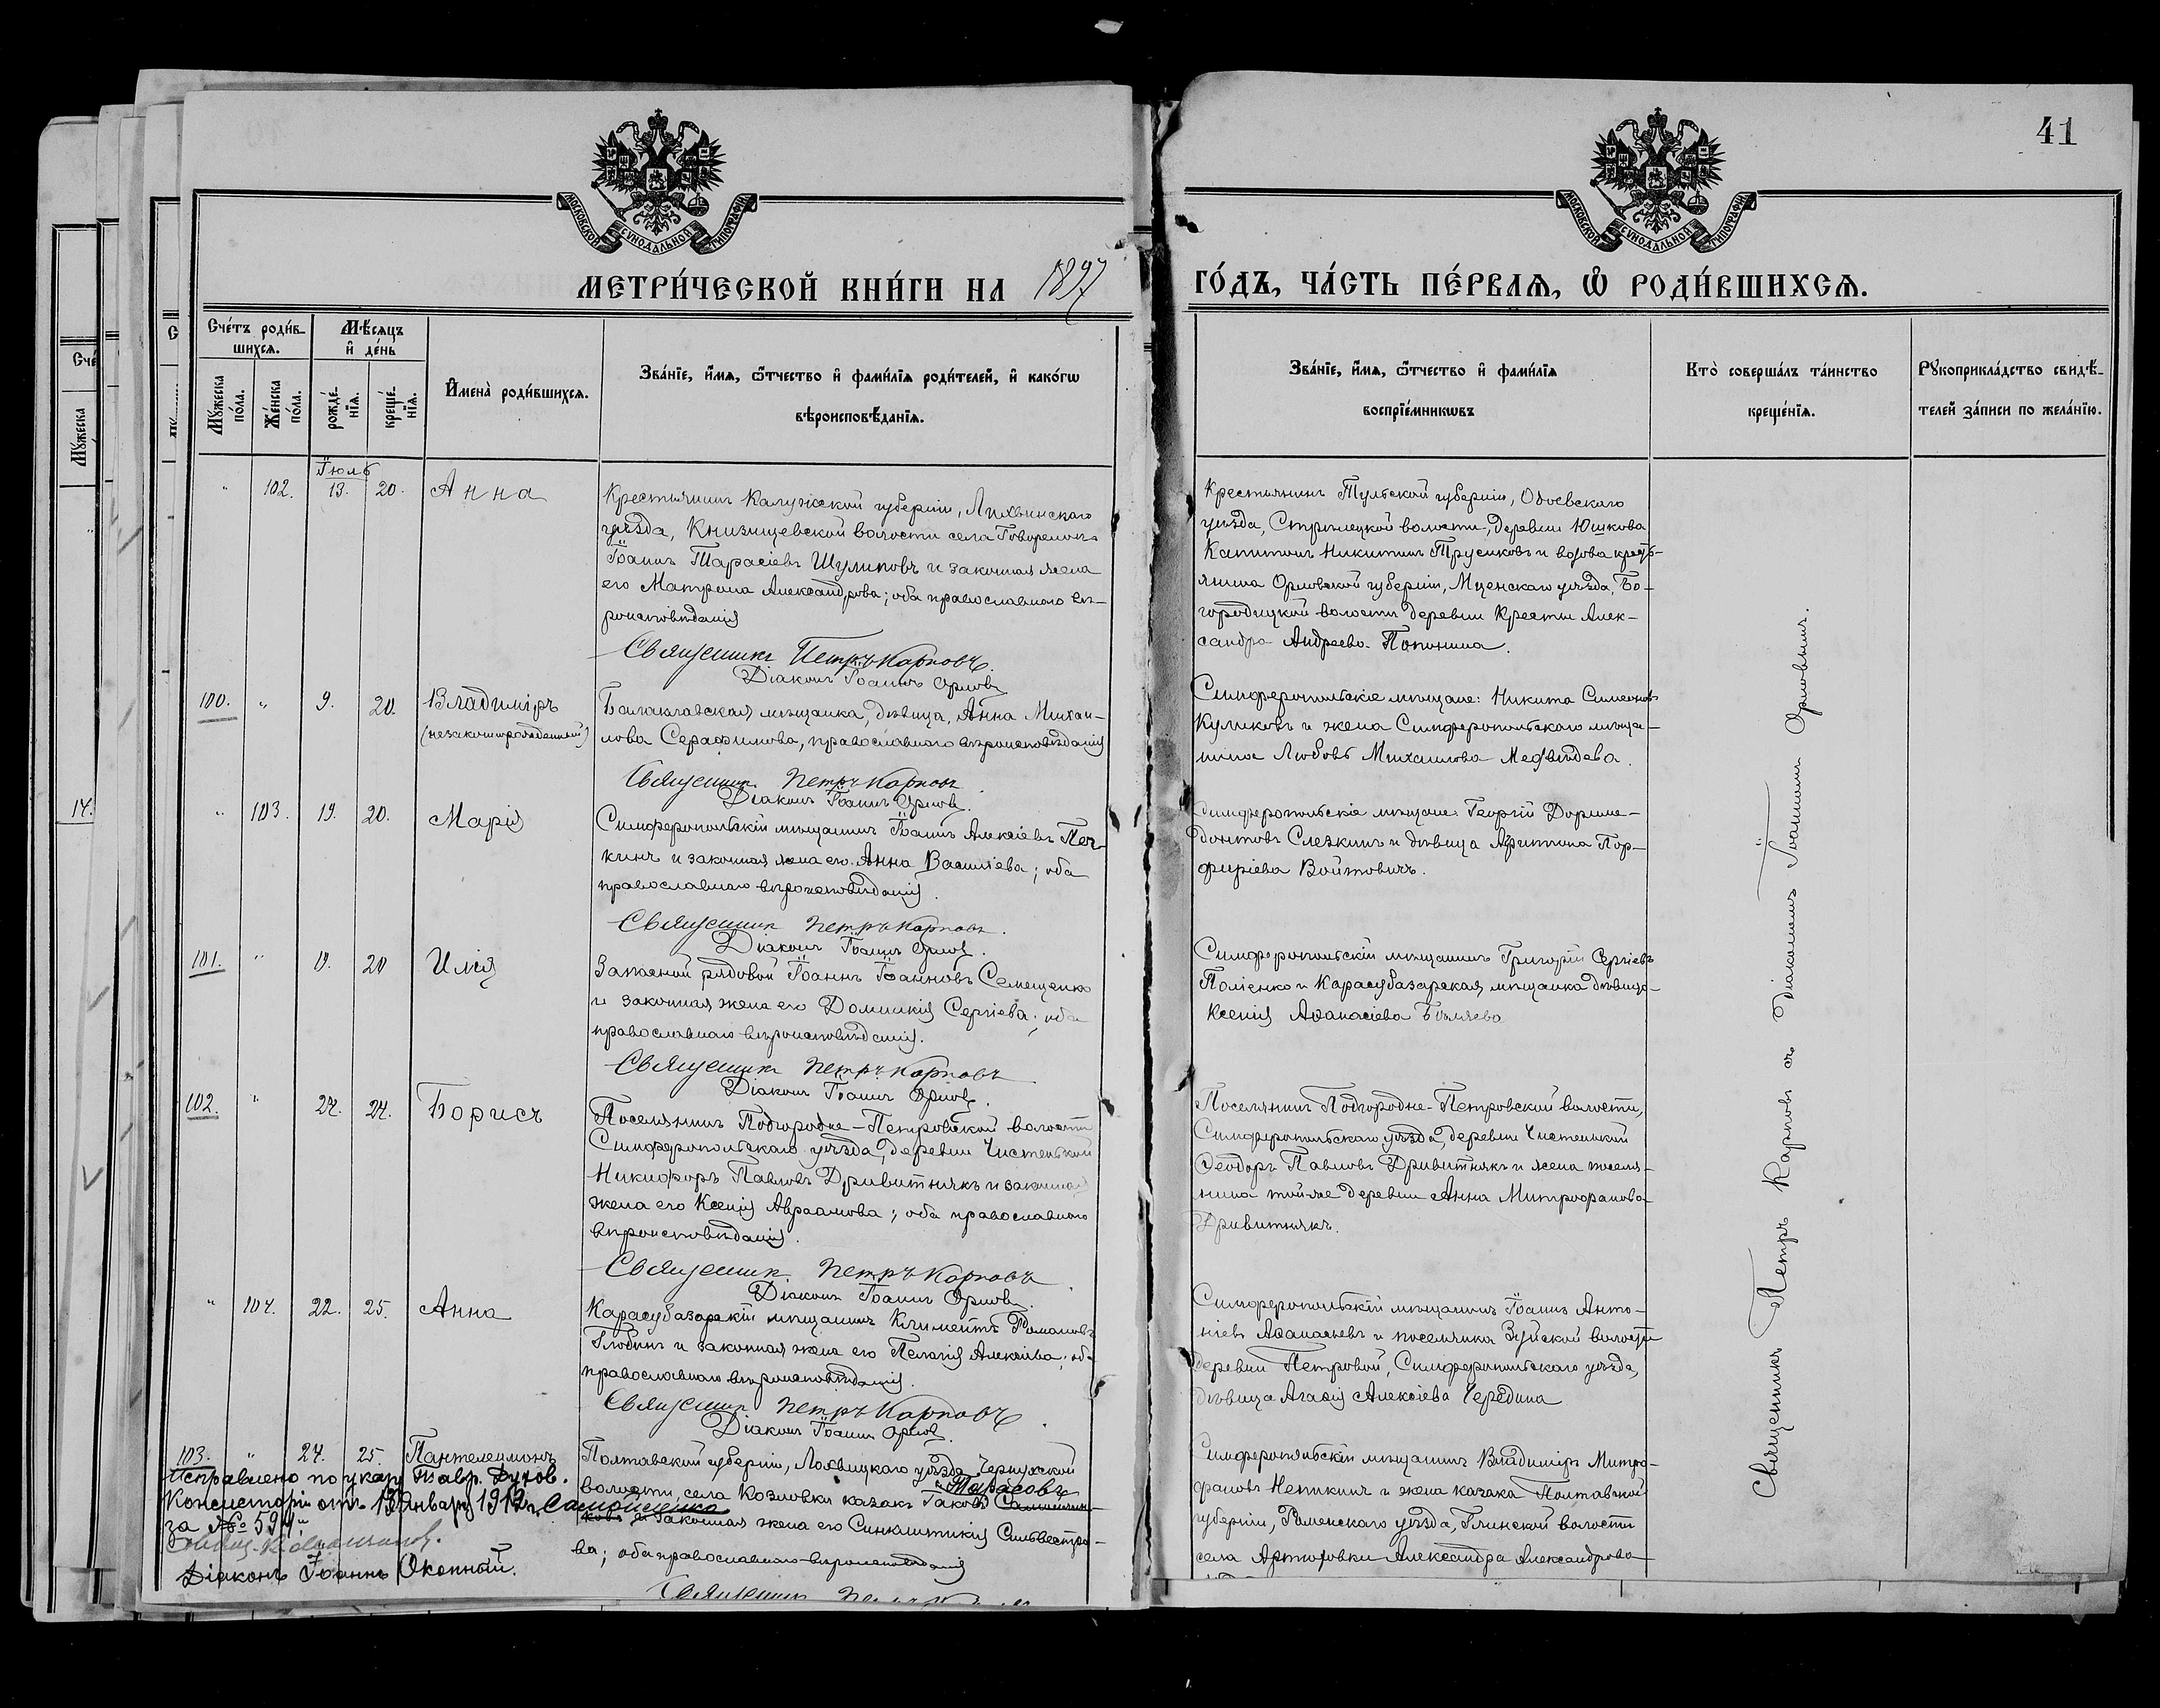 41
МОСКОВСКОЙ СѴНОДАЛЬНОЙ ТИПОГРАФІИ
МОСКОВСКОЙ СѴНОДАЛЬНОЙ ТИПОГРАФІИ
МЕТРИ́ЧЕСКОЙ КНИ́ГИ НА 1897
ГО́ДЪ, ЧА́СТЬ ПЕ́РВАѦ, Ѡ҆ РОДИ́ВШИХСѦ.
Счéтъ роди́в-
шихсѧ.
Мꙋ́жеска
по́ла.
Же́нска
по́ла.
Мѣ́сяцъ
и҆ де́нь
рожде́-
нїѧ.
креще́-
нїѧ.
И҆мена̀ роди́вшихсѧ.
Зва́нїе, и҆́мѧ, ѻ҆́тчество и҆ фами́лїѧ роди́телей, и҆ како́гѡ
вѣроисповѣ́данїѧ.
Зва́нїе, и҆́мѧ, ѻ҆́тчество и҆ фами́лїѧ
воспрїе́мникѡвъ
Кто̀ соверша́лъ та́инство
креще́нїѧ.
Рꙋкоприкла́дство свидѣ́-
телей за́писи по жела́нїю.
Іюль
" 102. 13. 20. Анна
Крестьянинъ Калужской губерніи, Лихвинскаго
уѣзда, Княжищевской волости села
Іоаннъ Тарасіевъ Шулиповъ и законная жена
его Матрона Александрова; оба православнаго вѣ-
роисповѣданія
Священникъ Петръ Карповъ.
Діаконъ Іоаннъ Орловъ
Крестьянинъ Тульской губерніи, Одоевскаго
уѣзда, Стрѣлецкой волости, деревни Юшкова
Капитонъ Никитинъ Трусиковъ и вдова кресть-
янина Орловской губерніи, Мценскаго уѣзда, Бо-
городицкой волости деревни Кресты Алек-
сандра Андреева Попонина.
100. " 9. 20. Владиміръ
(незаконнорожденный)
Балаклавская мѣщанка, дѣвица, Анна Михаи-
лова Серафимова, православнаго вѣроисповѣданія
Священникъ Петръ Карповъ
Діаконъ Іоаннъ Орловъ.
Симферопольскіе мѣщане: Никита Симеоновъ
Куликовъ и жена Симферопольскаго мѣща-
нина Любовь Михаилова Медвѣдева.
" 103. 19. 20. Марія
Симферопольскій мѣщанинъ Іоаннъ Алексіевъ Печ-
кинъ и законная жена его Анна Василіева; оба
православнаго вѣроисповѣданія.
Священникъ Петръ Карповъ.
Діаконъ Іоаннъ Орловъ.
Симферопольскіе мѣщане Георгій Дориме-
донтовъ Слезкинъ и дѣвица Пор-
фиріева Войтовичъ.
101. " 19. 20 Илія
Запасной рядовой Іоаннъ Іоанновъ Семещенко
и законная жена его Домникія Сергіева; оба
православнаго вѣроисповѣданія.
Священникъ Петръ Карповъ
Діаконъ Іоаннъ Орловъ.
Симферопольскій мѣщанинъ Григорій Сергіевъ
Поліенко и Карасубазарская мѣщанка дѣвица
Ксенія Аѳанасіева Бѣляева
102. " 24. 24. Борисъ
Поселянинъ Подгородне-Петровской волости
Симферопольскаго уѣзда, деревни Чистенькой
Никифоръ Павловъ Дривитнякъ и законная
жена его Ксенія Авраамова; оба православнаго
вѣроисповѣданія.
Священникъ Петръ Карповъ
Діаконъ Іоаннъ Орловъ.
Поселянинъ Подгородне-Петровской волости,
Симферопольскаго уѣзда, деревни Чистенькой
Ѳеодоръ Павловъ Дривитнякъ и жена поселя-
нина той-же деревни Анна Митрофанова
Дривитнякъ.
" 104. 22. 25. Анна
Карасубазарскій мѣщанинъ Климентъ Романовъ
Глобинъ и законная жена его Пелагія Алексіева; оба
православнаго вѣроисповѣданія.
Священникъ Петръ Карповъ.
Діаконъ Іоаннъ Орловъ.
Симферопольскій мѣщанинъ Іоаннъ Анто-
ніевъ Аѳанасьевъ и поселянка Зуйской волости
деревни Петровой, Симферопольскаго уѣзда,
дѣвица Агаѳія Алексіева Чередина
103. " 24. 25. Пантелеимонъ
Полтавской губерніи, Лохвицкаго уѣзда, Чернухской
волости, села Козловки казакъ Іаковъ "Тарасовъ
Самойленко
и законная жена его Синклитикія Сильвестро-
ва; оба православнаго вѣроисповѣданія
Исправлено по указу Тавр. Духов.
Консисторіи отъ 13 Января 1912 г.
за № 594
Діаконъ Іоаннъ Окопный.
Симферопольскій мѣщанинъ Владиміръ Митро-
фановъ Непикинъ и жена казака Полтавской
губерніи, Роменскаго уѣзда, Глинской волости
села Артюховки Александра Александрова
Священникъ Петръ Карповъ съ діакономъ Іоанномъ Орловымъ.
14.